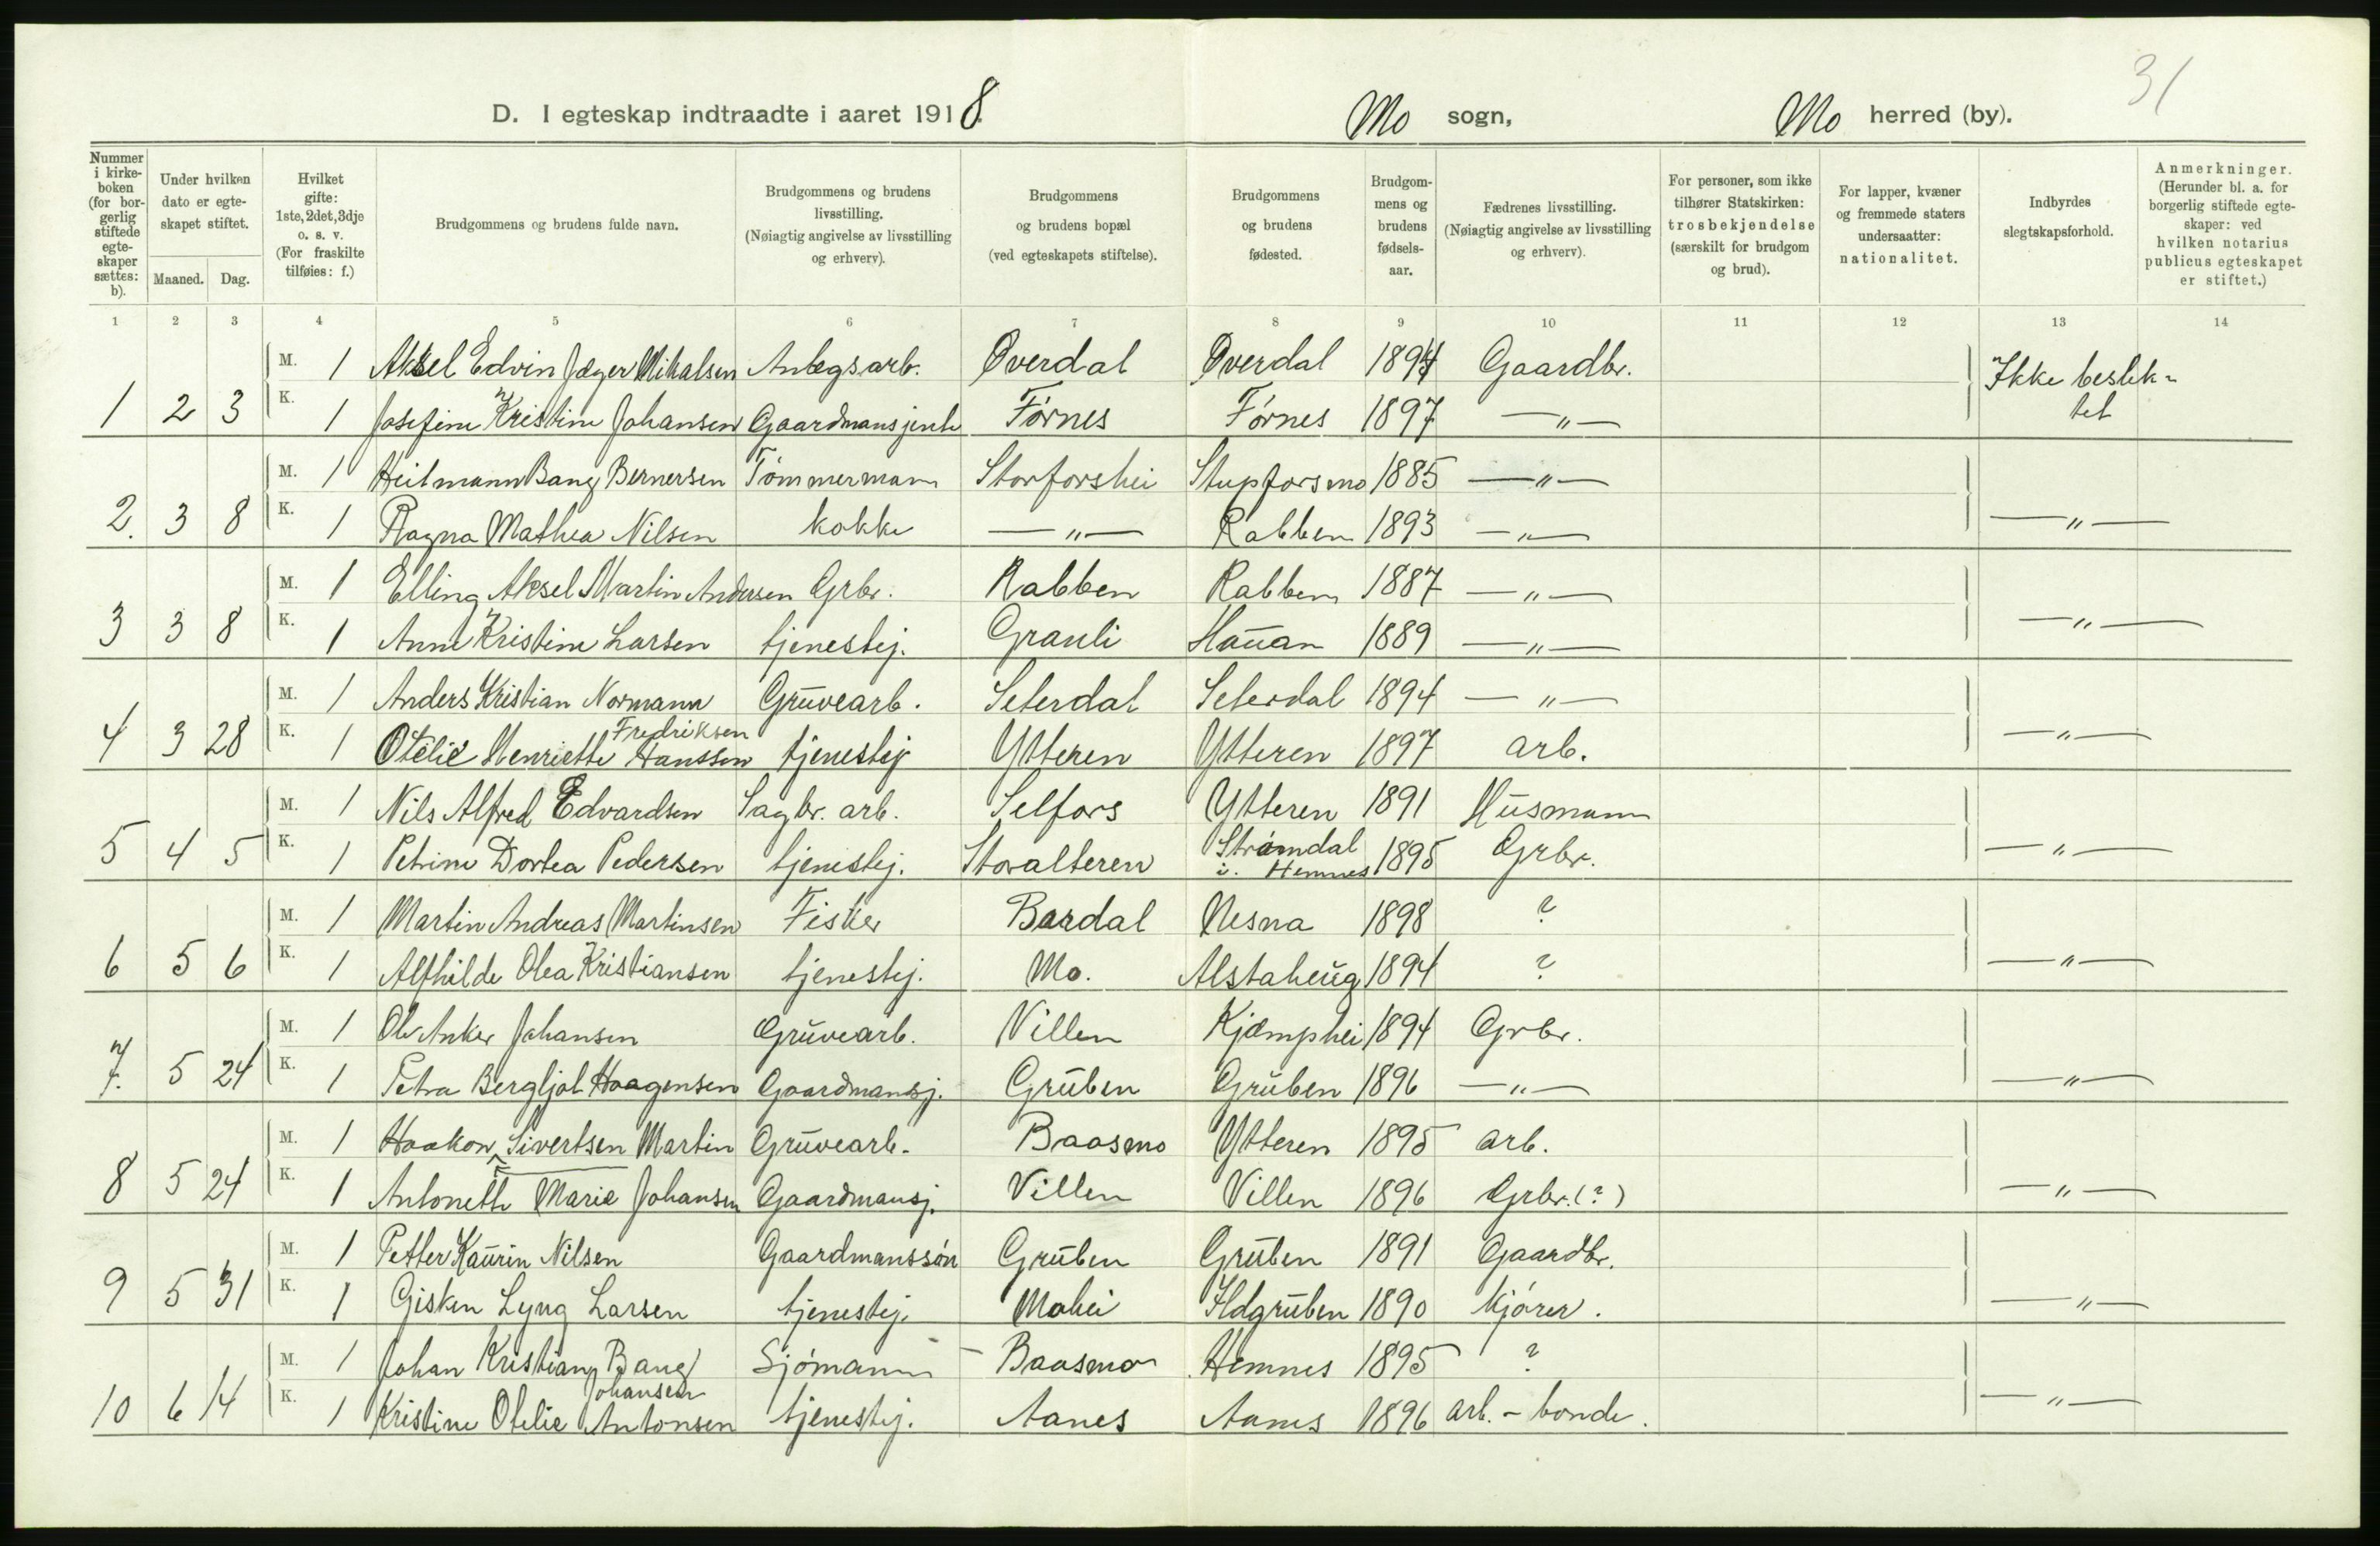 31
D. I egteskap indtraadte i aaret 1918. Mo sogn, Mo herred (by).
Nummer i kirkeboken (for borgerlig stiftede egteskaper sættes: b).
Under hvilken dato er egteskapet stiftet.
Maaned. Dag.
Hvilket gifte: 1ste, 2det, 3dje o. s. v. (For fraskilte tilføies: f.)
Brudgommens og brudens fulde navn.
Brudgommens og brudens livsstilling. (Nøiagtig angivelse av livsstilling og erhverv).
Brudgommens og brudens bopæl (ved egteskapets stiftelse).
Brudgommens og brudens fødested.
Brudgommens og brudens fødselsaar.
Fædrenes livsstilling. (Nøiagtig angivelse av livsstilling og erhverv).
For personer, som ikke tilhører Statskirken: trosbekjendelse (særskilt for brudgom og brud).
For lapper, kvæner og fremmede staters undersaatter: nationalitet.
Indbyrdes slegtskapsforhold.
Anmerkninger. (Herunder bl. a. for borgerlig stiftede egteskaper: ved hvilken notarius publicus egteskapet er stiftet.)
1 2 3 4 5 6 7 8 9 10 11 12 13 14
M. 1 Aksel Edvin Jæger Mikalsen Anlegsarb. Øverdal Øverdal 1894 Gaardbr. Ikke beslek-
1 2 3 K. 1 Josefine Kristine Johansen Gaardmansjente Førnes Førnes 1897 —"— tet
M. 1 Heitmann Bang Bernersen Tømmermann Storforshei Stupforsmo 1885 —"—
2. 3 8 K. 1 Ragna Mathea Nilsen kokke —"— Rabben 1893 —"— —"—
M. 1 Elling Aksel Martin Andersen Grbr. Rabben Rabben 1887 —"—
3 3 8 K. 1 Anne Kristine Larsen tjenestej. Granli Hauan 1889 —"— —"—
M. 1 Anders Kristian Normann Gruvearb. Seterdal Seterdal 1894 —"—
Fredriksen
4 3 28 K. 1 Otelie Henriette Hanssen tjenestej Ytteren Ytteren 1897 arb. —"—
M. 1 Nils Alfred Edvardsen Sagbr. arb. Selfors Ytteren 1891 Husmann
5 4 5 K. 1 Petrine Dortea Pedersen tjenestej. Storalteren Strømdal i. Hemnes 1895 Grbr. —"—
M. 1 Martin Andreas Martinsen Fisker Bardal Nesna 1898 ?
6 5 6 K. 1 Alfhilde Olea Kristiansen tjenestej. Mo. Alstahaug 1894 ? —"—
M. 1 Ole Anker Johansen Gruvearb. Villen Kjæmphei 1894 Grbr.
7. 5 24 K. 1 Petra Bergljot Haagensen Gaardmansj. Gruben Gruben 1896 —"— —"—
M. 1 Haakon Sivertsen Martin Gruvearb. Baasmo Ytteren 1895 arb.
8 5 24 K. 1 Antonette Marie Johansen Gaardmansj. Villen Villen 1896 Grbr. (?) —"—
M. 1 Petter Kaurin Nilsen Gaardmanssøn Gruben Gruben 1891 Gaardbr.
9 5 31 K. 1 Gisken Lyng Larsen tjenestej. Mohei Ildgruben 1890 kjører. —"—
M. 1 Johan Kristian Bang Sjømann – Baasmo Hemnes 1895 ?
Johansen
10 6 14 K. 1 Kristine Otelie Antonsen tjenestej. Aanes Aanes 1896 arb. – bonde. —"—